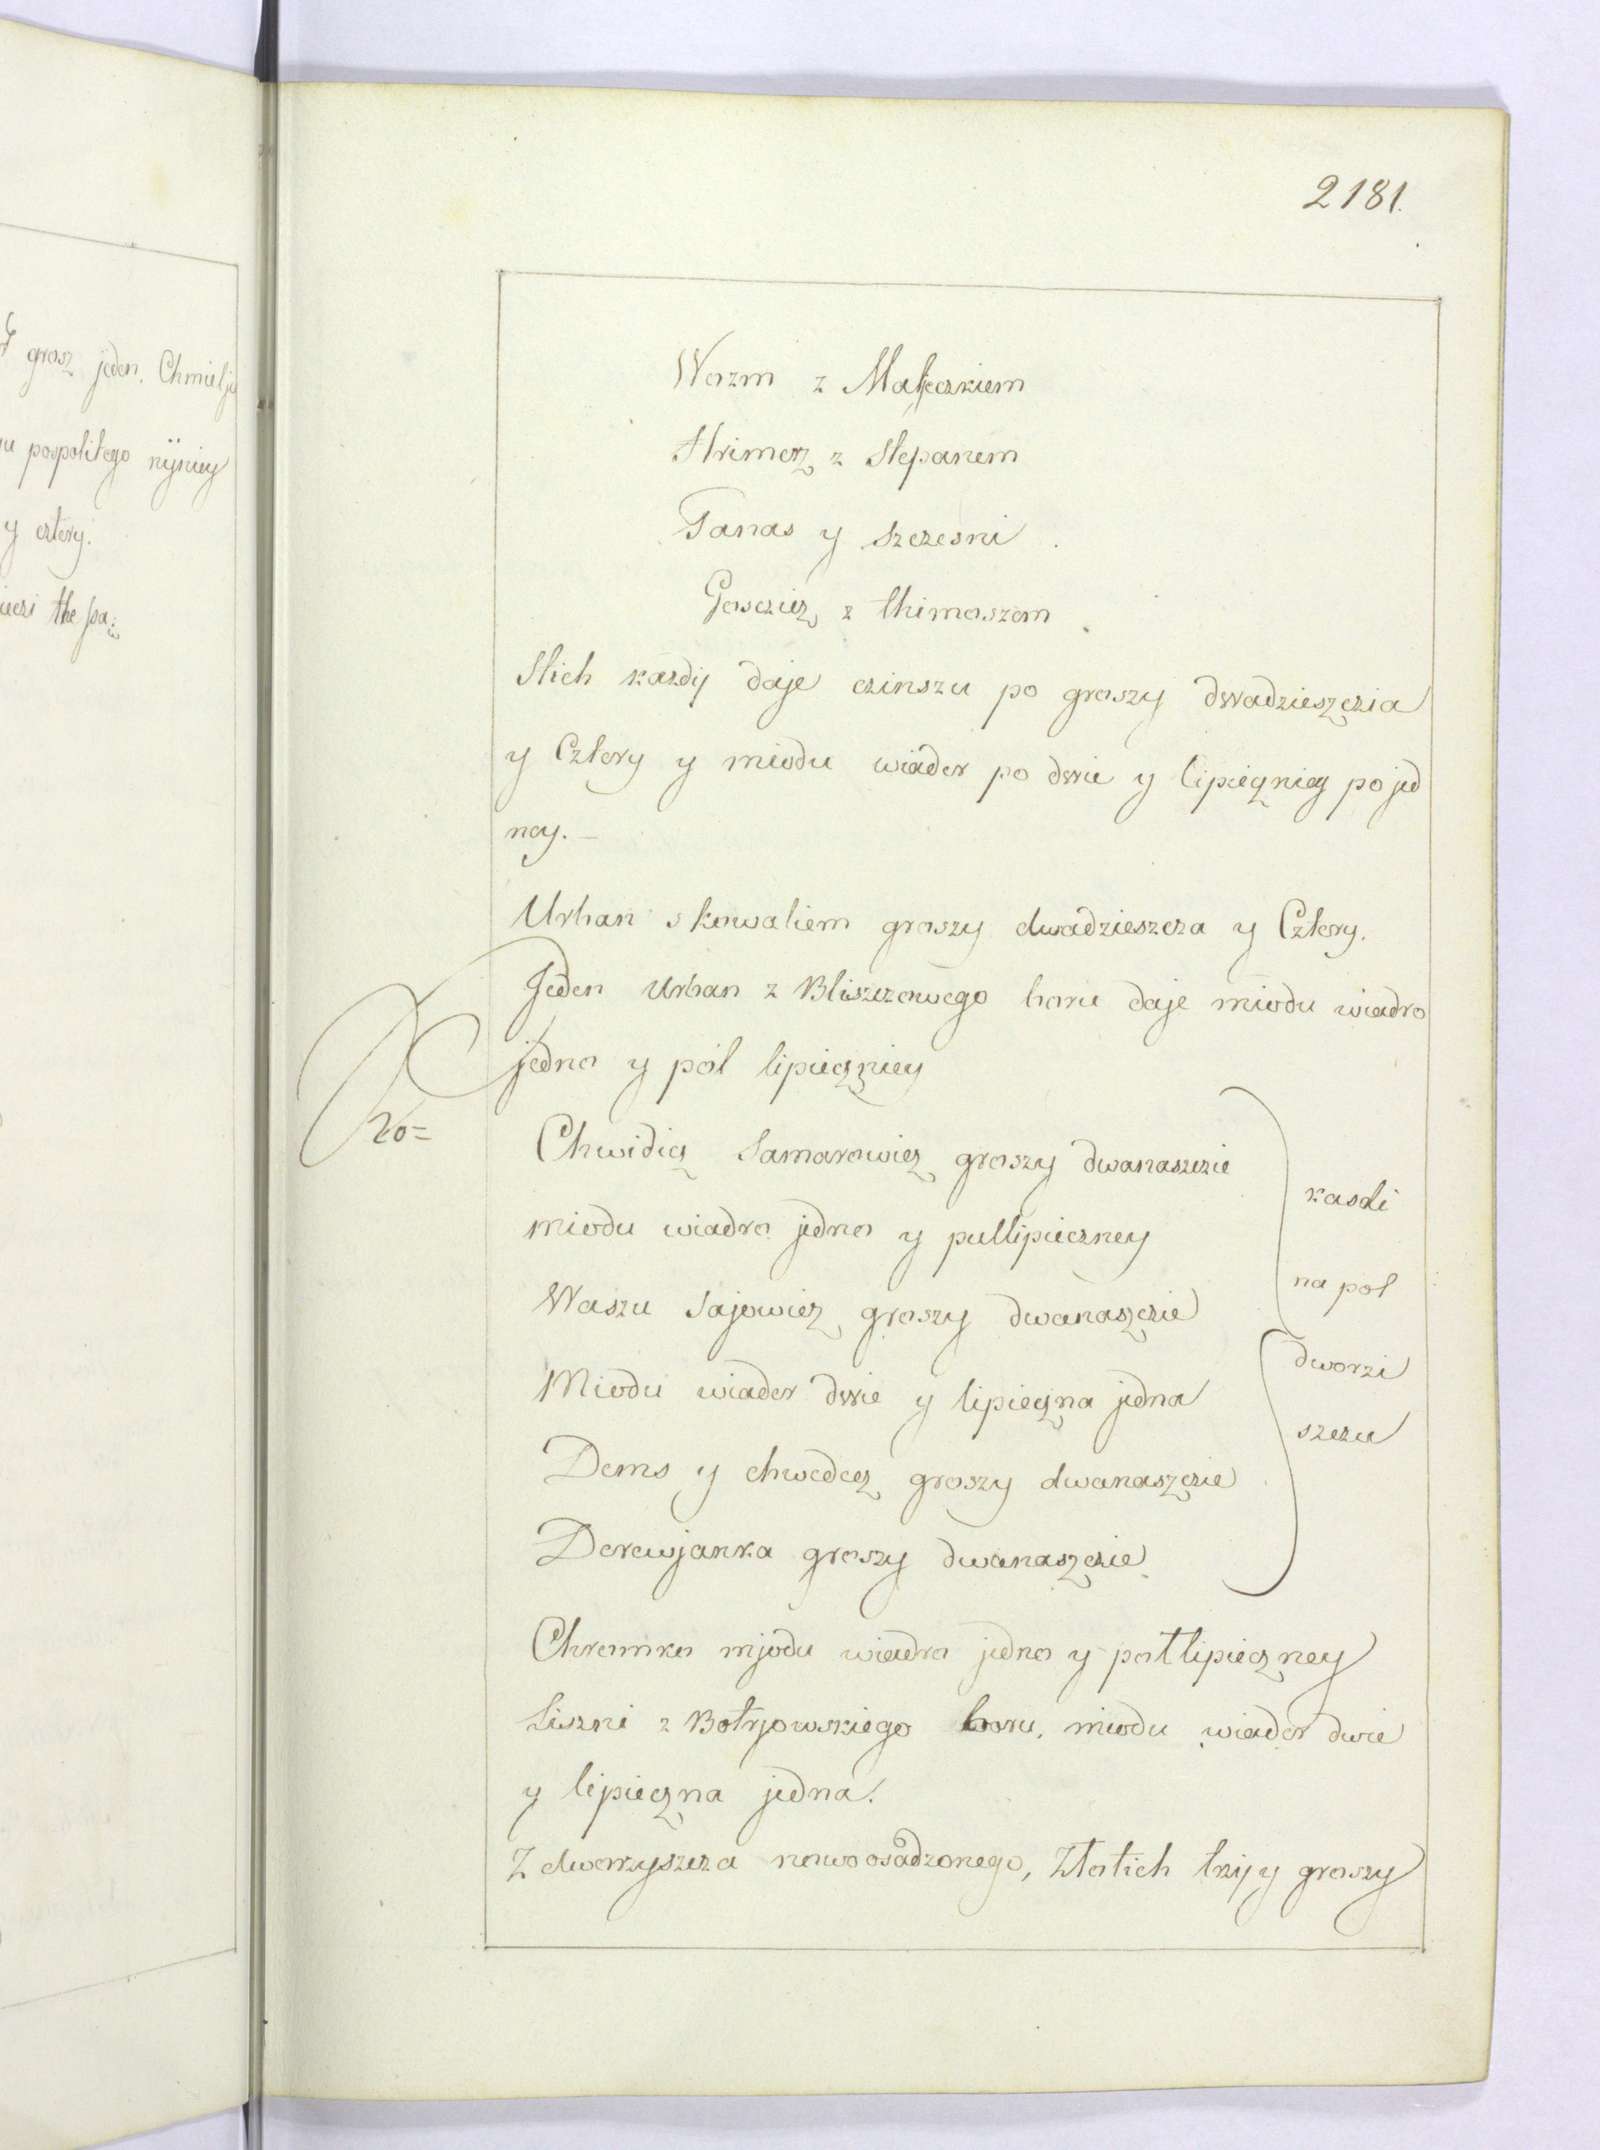 grosz jeden. Chmielju
pospolitego nÿniey
y cztery.
the pa:
2181.
Wozm z Maleczkiem
Hrimerz z Stepanem
Tanas y Szczesni
Gosczicz z thimoszem
Stich każdÿ daje czinszu po groszy dwadzieszczia
y Cztery y miodu wiader po dwie y lipieczniey po jed
ney.—
Urban s kowaliem groszy dwadzieszcza y Cztery.
Jeden Urban z Bliszczowego boru daje miodu wiadro
jedno y pół lipieczniey
20=
Chwidicz Samarowicz groszy dwanaszczie
miodu wiadro jedno y pullipieczney
Waszu Sajowicz groszy dwanaszczie
Miodu wiader dwie y lipieczna jedna
Dems y chwedecz groszy dwanaszczie
Derewjanka groszy dwanaszczie
kasdi
na pol
dworzi
szczu
Chromko mjodu wiadro jedno y pottlipieczney
Liszni z Botrjowskiego boru, miodu wiader dwie
y lipieczna jedna.
Z dworzyszcza nowo osadzonego, Złotich trzÿ y groszy